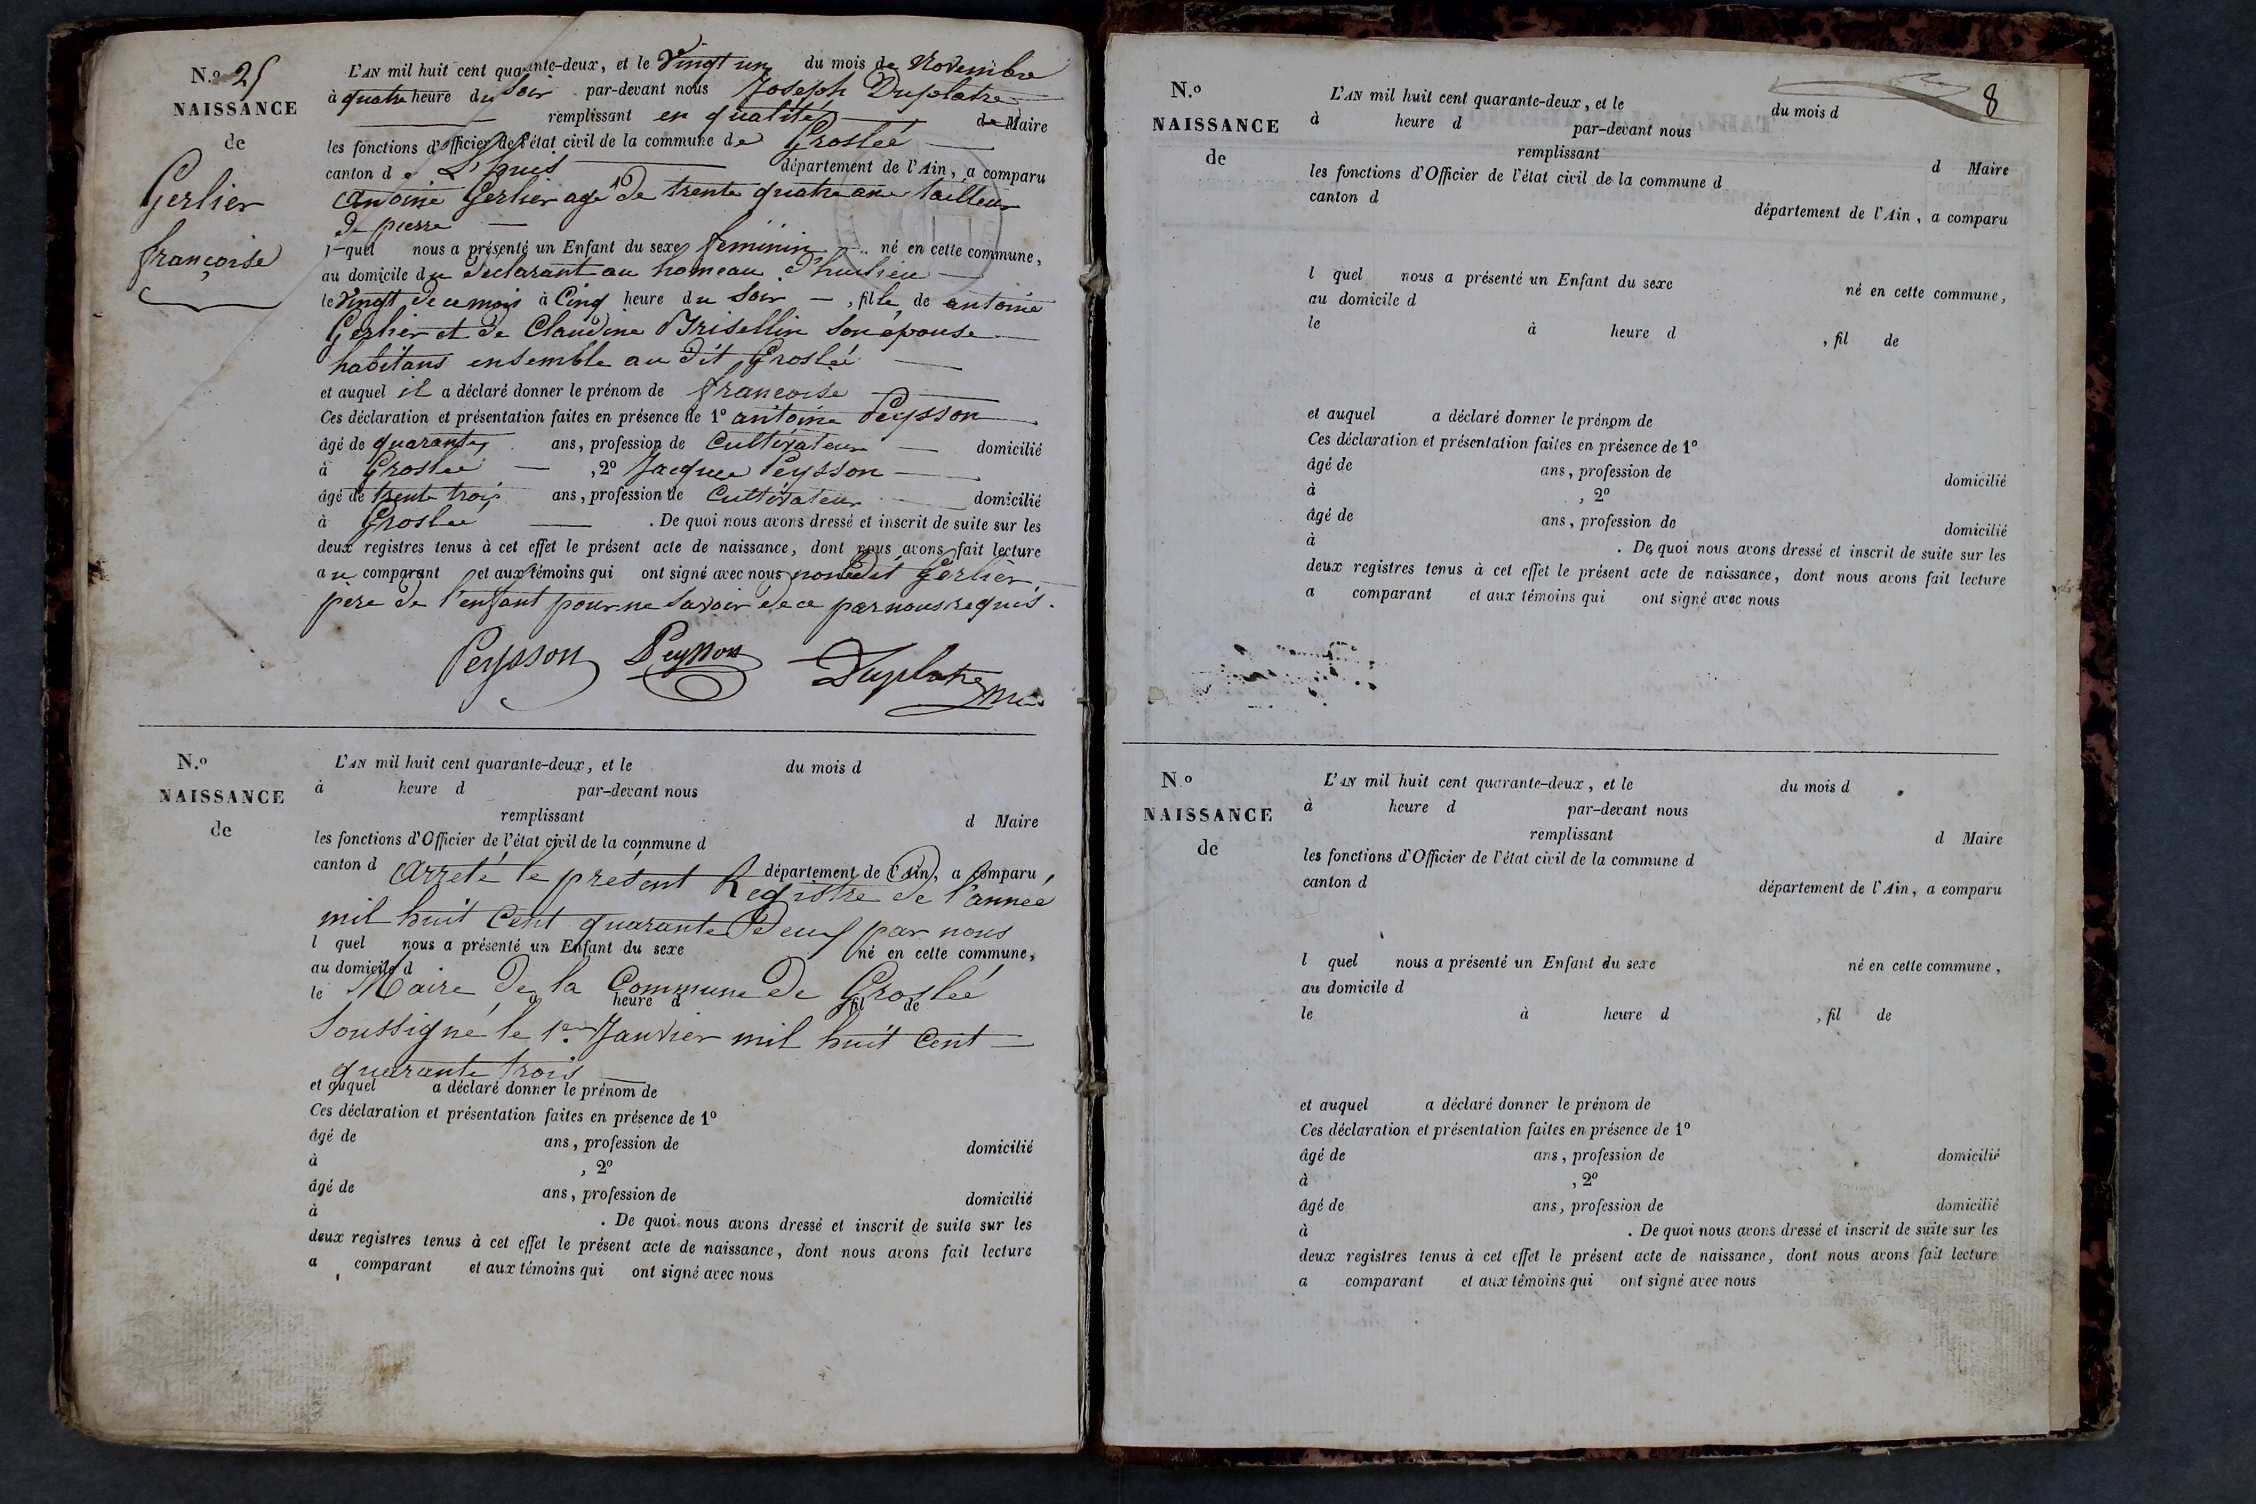 N.º 25
NAISSANCE
de
Gerlier
françoise
L'AN mil huit cent quarante-deux, et le Vingt un du mois de Novembre
à quatre heure du Soir par-devant nous Joseph Duplatre
remplissant en qualité de Maire
les fonctions d'Officier de l'état civil de la commune de Groslée
canton de L'huis département de l'Ain, a comparu
antoine Gerlier agé de trente quatre ans tailleur
de pierre
lequel nous a présenté un Enfant du sexe feminin né en cette commune,
au domicile du declarant au homeau d'huilieu
le Vingt de ce mois à Cinq heure du Soir, fille de antoine
Gerlier et de Claudine Brisellin Son épouse
habitans ensemble au dit Groslée
et auquel il a déclaré donner le prénom de francoise
Ces déclaration et présentation faites en présence de 1º antoine Peysson
âgé de quarante ans, profession de Cultivateur domicilié
à Groslee, 2º Jacques Peysson
âgé de trente trois ans, profession de Cultivateur domicilié
à Groslee. De quoi nous avons dressé et inscrit de suite sur les
deux registres tenus à cet effet le présent acte de naissance, dont nous avons fait lecture
au comparant et aux témoins qui ont signé avec nous non ledit Gerlier
pere de l'enfant pour ne Savoir de ce par nous requis.
Peysson Peysson Duplatre Mre
N.º
NAISSANCE
de
L'AN mil huit cent quarante-deux, et le du mois d
à heure d par-devant nous
remplissant d Maire
les fonctions d'Officier de l'état civil de la commune d
canton d département de l'Ain, a comparu
arreté le présent Registre de l'année
mil huit Cent quarante Deux par nous
l quel nous a présenté un Enfant du sexe né en cette commune,
au domicile d
Maire de la Commune de Groslée
le à heure d fil de
Soussigné le 1er Janvier mil huit Cent
quarante trois
et auquel a déclaré donner le prénom de
Ces déclaration et présentation faites en présence de 1º
âgé de ans, profession de domicilié
à , 2º
âgé de ans, profession de domicilié
à . De quoi nous avons dressé et inscrit de suite sur les
deux registres tenus à cet effet le présent acte de naissance, dont nous avons fait lecture
a comparant et aux témoins qui ont signé avec nous
8
N.º
NAISSANCE
de
L'AN mil huit cent quarante-deux, et le du mois d
à heure d par-devant nous
remplissant d Maire
les fonctions d'Officier de l'état civil de la commune d
canton d département de l'Ain, a comparu
l quel nous a présenté un Enfant du sexe né en cette commune,
au domicile d
le à heure d , fil de
et auquel a déclaré donner le prénom de
Ces déclaration et présentation faites en présence de 1º
âgé de ans, profession de domicilié
à , 2º
âgé de ans, profession de domicilié
à . De quoi nous avons dressé et inscrit de suite sur les
deux registres tenus à cet effet le présent acte de naissance, dont nous avons fait lecture
a comparant et aux témoins qui ont signé avec nous
N.º
NAISSANCE
de
L'AN mil huit cent quarante-deux, et le du mois d
à heure d par-devant nous
remplissant d Maire
les fonctions d'Officier de l'état civil de la commune d
canton d département de l'Ain, a comparu
l quel nous a présenté un Enfant du sexe né en cette commune,
au domicile d
le à heure d , fil de
et auquel a déclaré donner le prénom de
Ces déclaration et présentation faites en présence de 1º
âgé de ans, profession de domicilié
à , 2º
âgé de ans, profession de domicilié
à . De quoi nous avons dressé et inscrit de suite sur les
deux registres tenus à cet effet le présent acte de naissance, dont nous avons fait lecture
a comparant et aux témoins qui ont signé avec nous